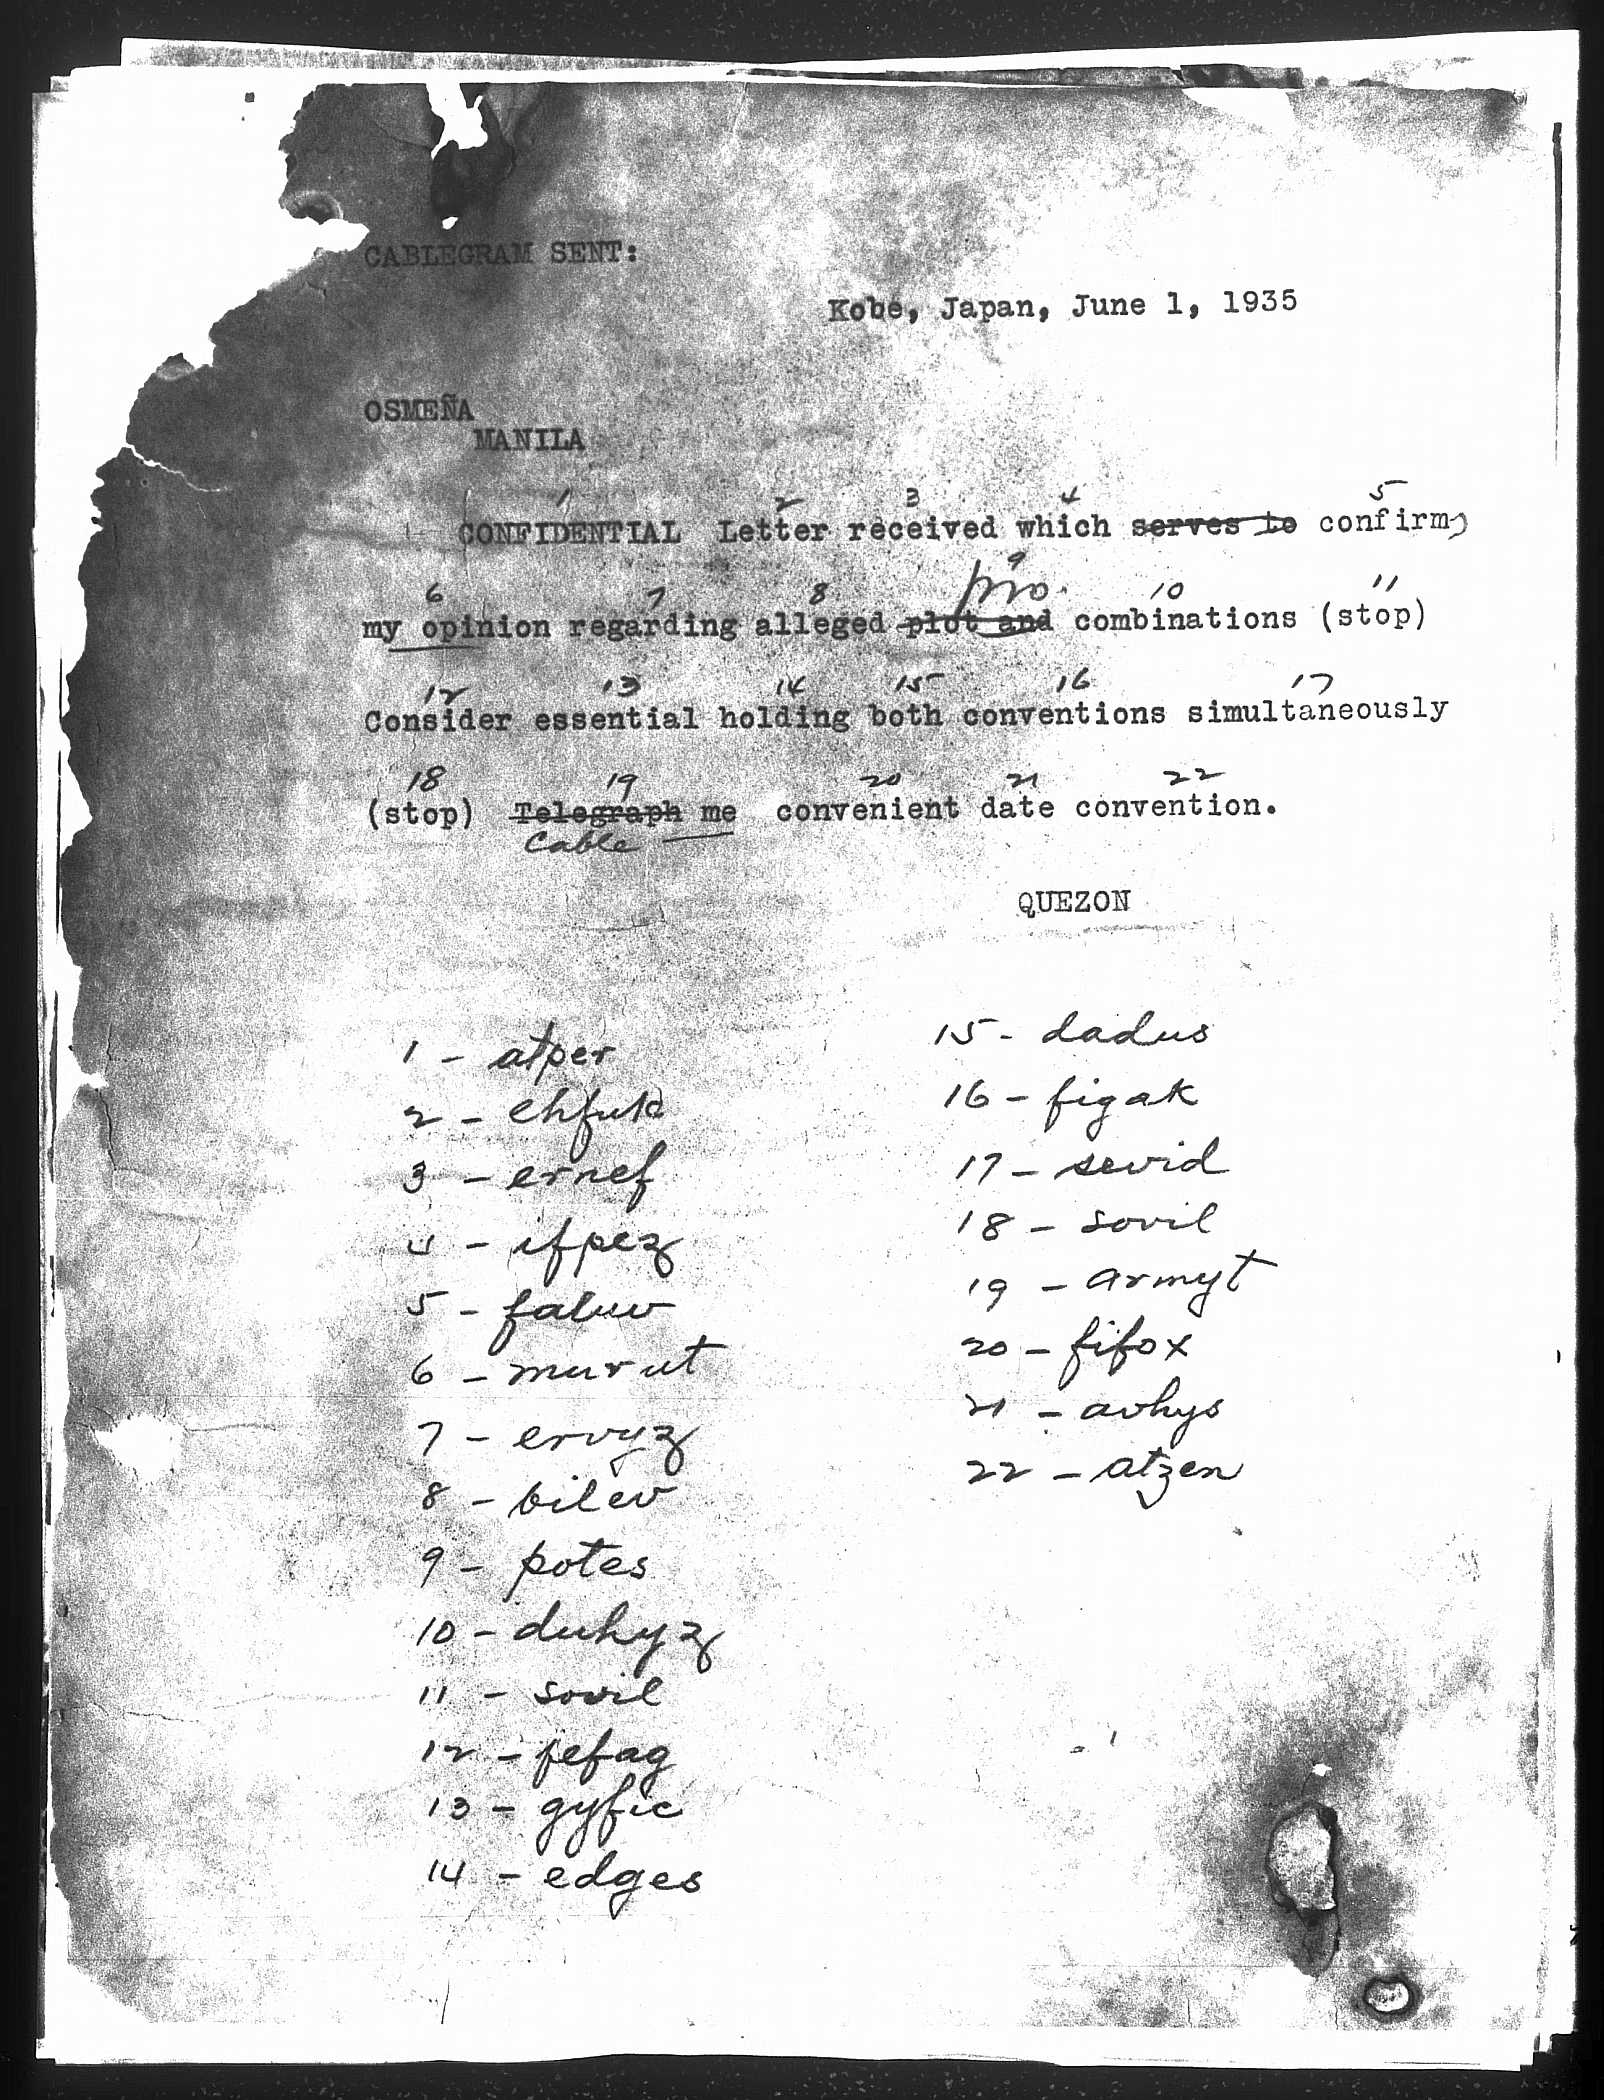 CABLEGRAM SENT:
Kobe, Japan, June 1, 1935
OSMEÑA
MANILA
1 2 3 4 5
CONFIDENTIAL Letter received which serves to confirm
9
6 7 8 pro. 10 11
my opinion regarding alleged plot and combinations (stop)
12 13 14 15 16 17
Consider essential holding both conventions simultaneously
18 19 20 21 22
(stop) Telegraph me convenient date convention.
Cable
QUEZON
1 - atper
2 - ehfuk
3 - ernef
4 - ifpez
5 - faluw
6 - murut
7 - ervyz
8 - bilev
9 - potes
10 - duhyz
11 - sovil
12 - fefag
13 - gyfic
14 - edges
15 - dadus
16 - figak
17 - sevid
18 - sovil
19 - armyt
20 - fifox
21 - avhys
22 - atzen